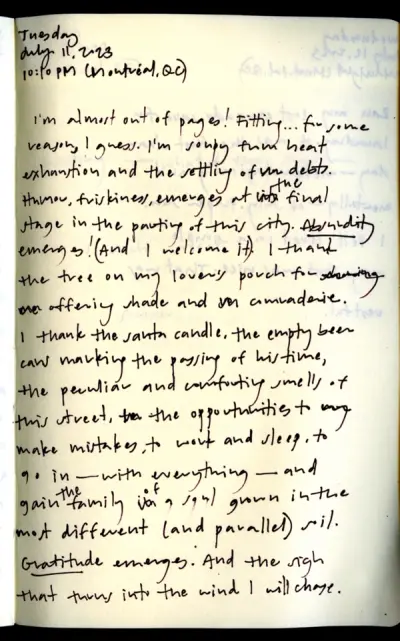 Tuesday
July 11, 2023
10:10 PM (Montréal, QC)
I'm almost out of pages! Fitting... for some
reason, I guess. I'm soupy from heat
exhaustion and the settling of debts.
Humour, friskiness, emerges at the final
stage in the parting of this city. Absurdity
emerges! (And I welcome it) I thank
the tree on my lover's porch for
offering shade and camaraderie.
I thank the santa candle, the empty beer
cans marking the passing of his time,
the peculiar and comforting smells of
this street, the opportunities to
make mistakes, to work and sleep, to
go in — with everything — and
gain the family of a soul grown in the
most different (and parallel) soil.
Gratitude emerges. And the sigh
that turns into the wind I will chase.